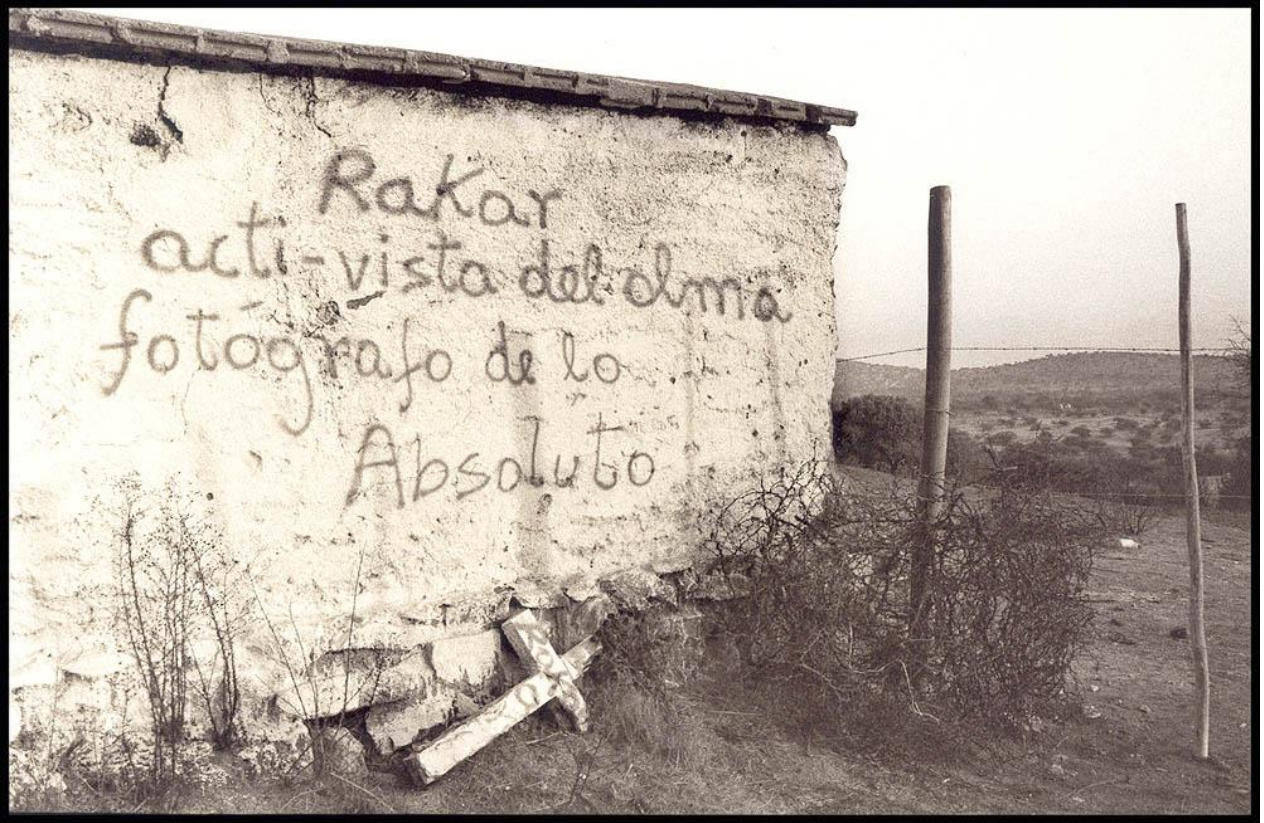 Rakar
acti-vista del alma
fotógrafo de lo
Absoluto